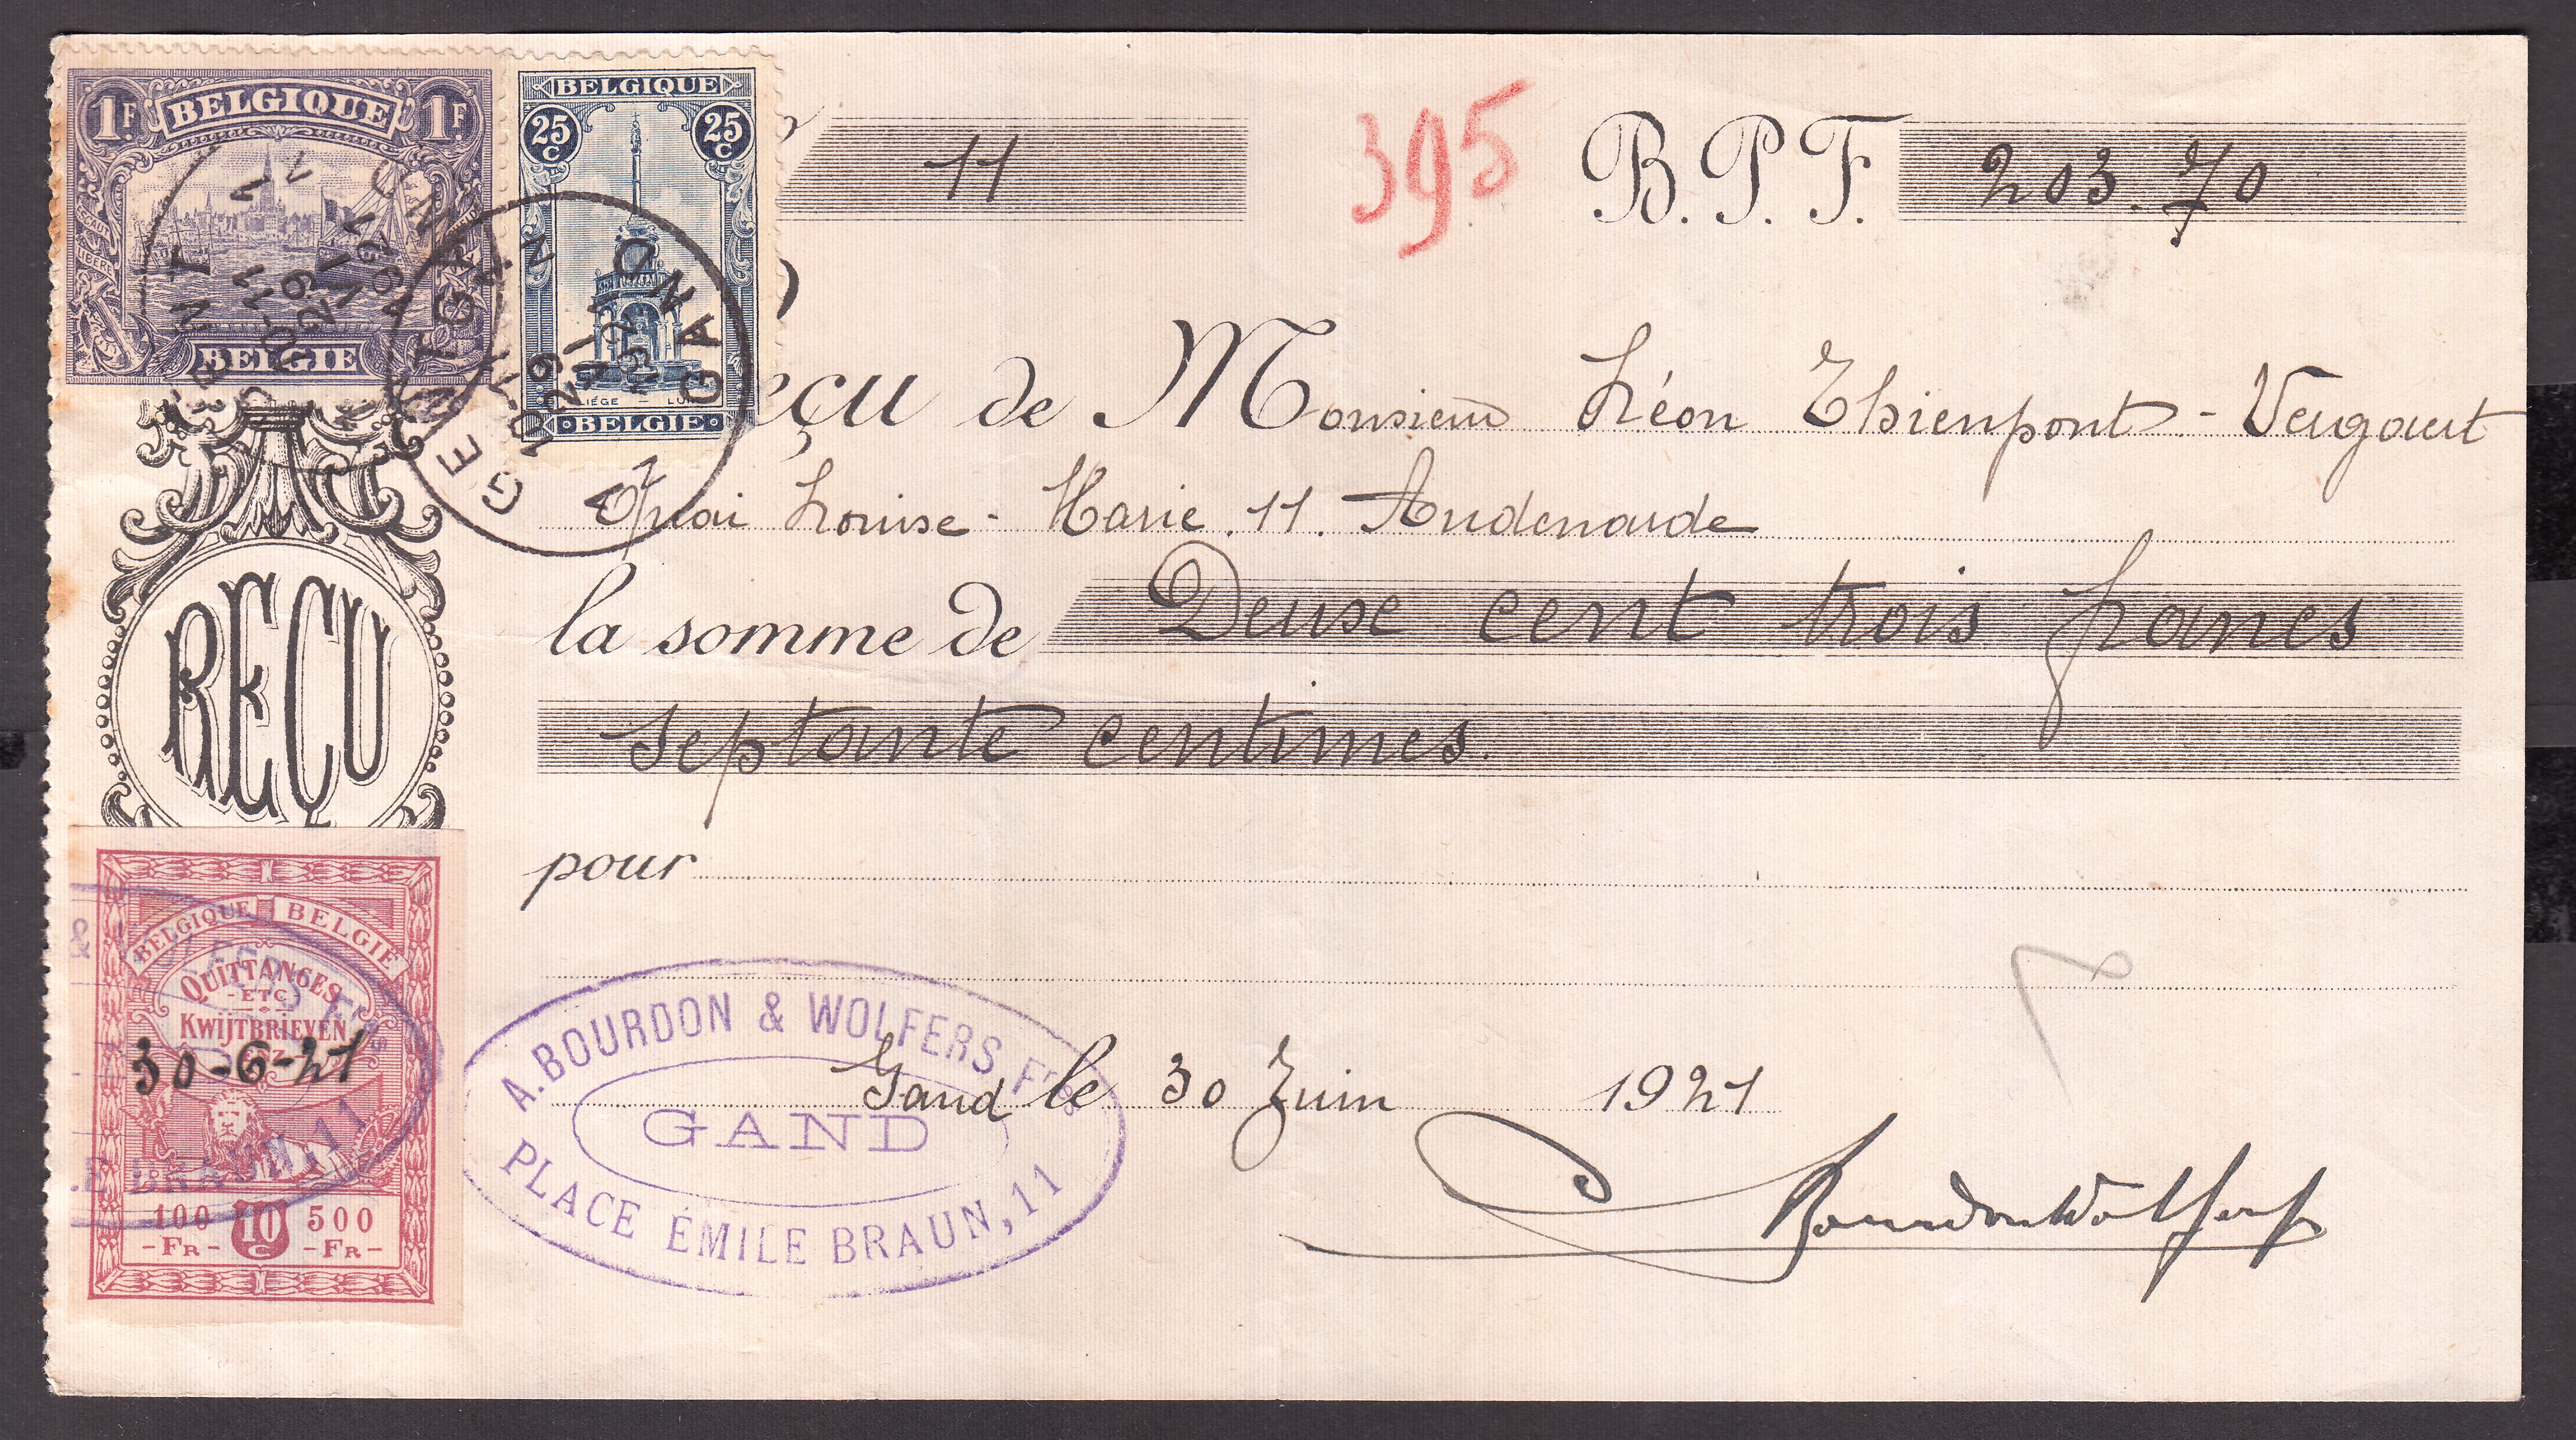 1F BELGIQUE 1F
ESCAUT LIBÉRÉ
BELGIË
BELGIQUE
25 C 25 C
LIÉGE — LUIK
BELGIË
GENT GAND
11
395
B.P.F. 203.70
eçu de Monsieur Léon Thienpont - Vergaert
Quai Louise-Marie. 11. Audenarde
la somme de Deux cent trois francs
septante centimes.
REÇU
pour
BELGIQUE BELGIË
QUITTANCES
-ETC-
KWIJTBRIEVEN
ENZ
30-6-21
E BRAUN, 11
100 10 500
-FR- C -FR-
A. BOURDON & WOLFERS Frs
GAND
PLACE ÉMILE BRAUN, 11
Gand le 30 Juin 1921
BourdonWolfers